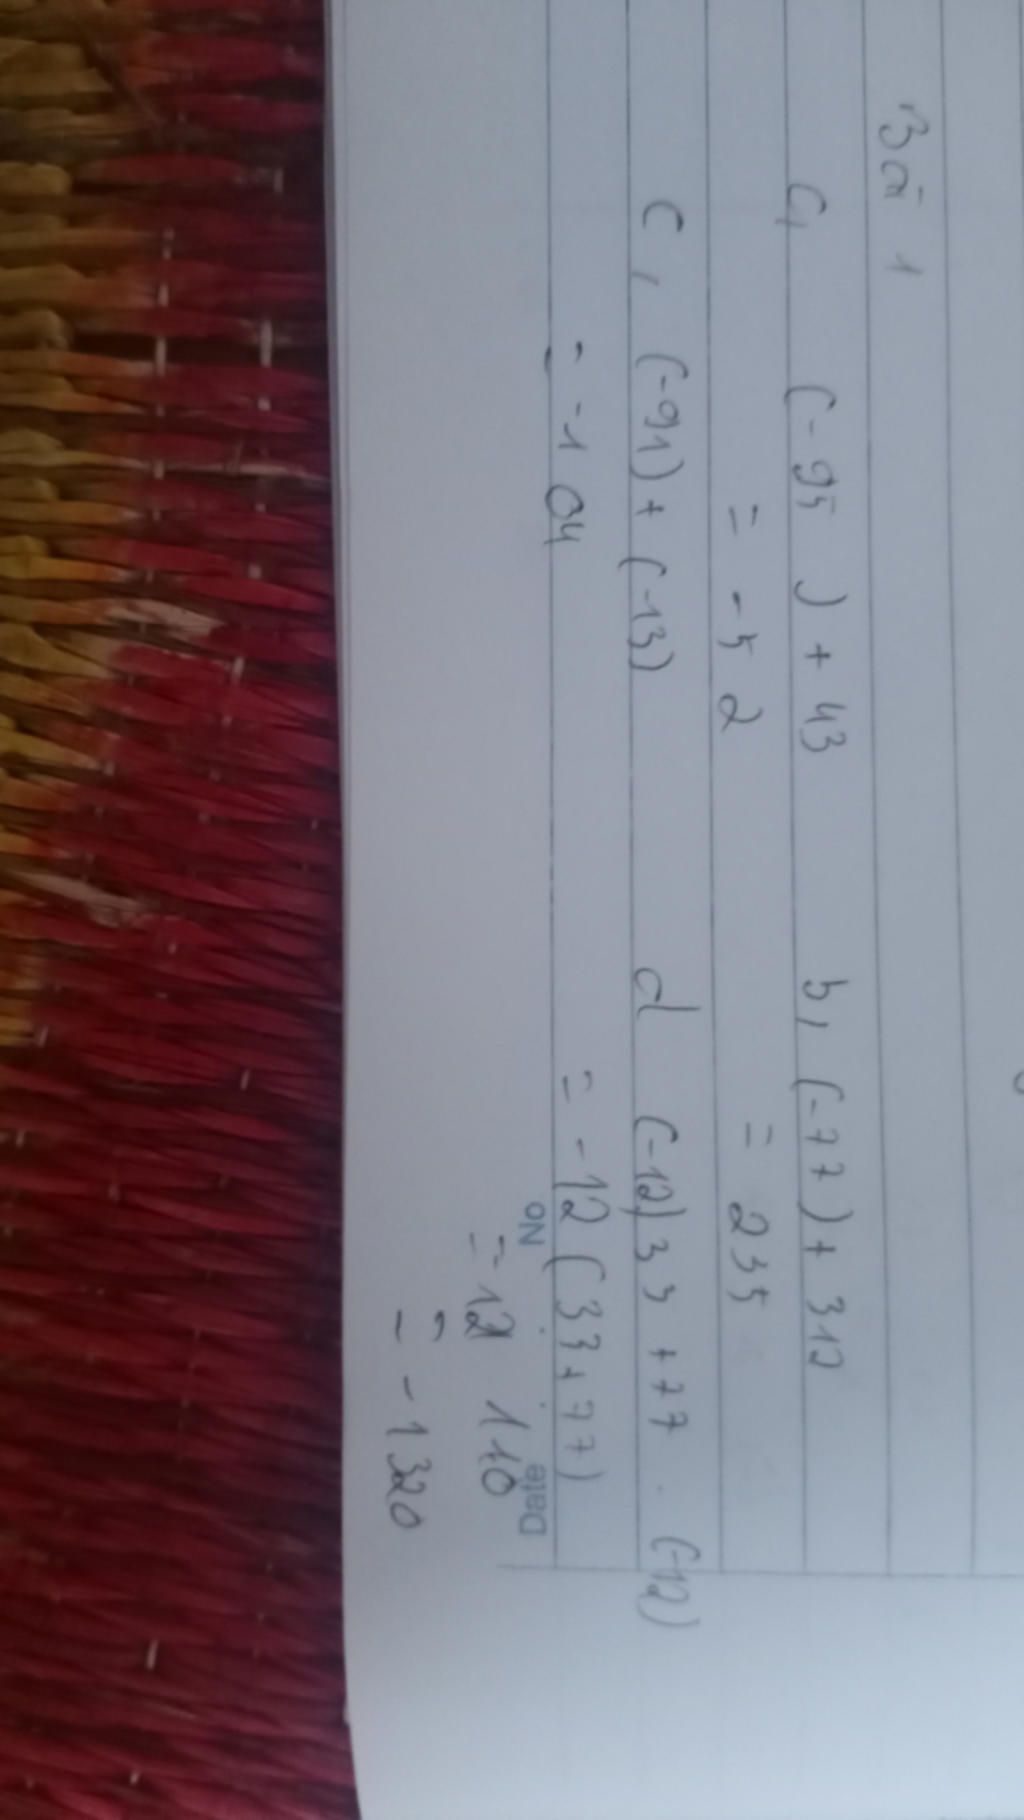 Bài 1
a, (-95) + 43 b, (-77) + 312
= -52 = 235
c, (-91) + (-13) d (-12) 33 + 77 . (-12)
= -104 = -12 (33 + 77)
No Date
= 12 110
= -1320